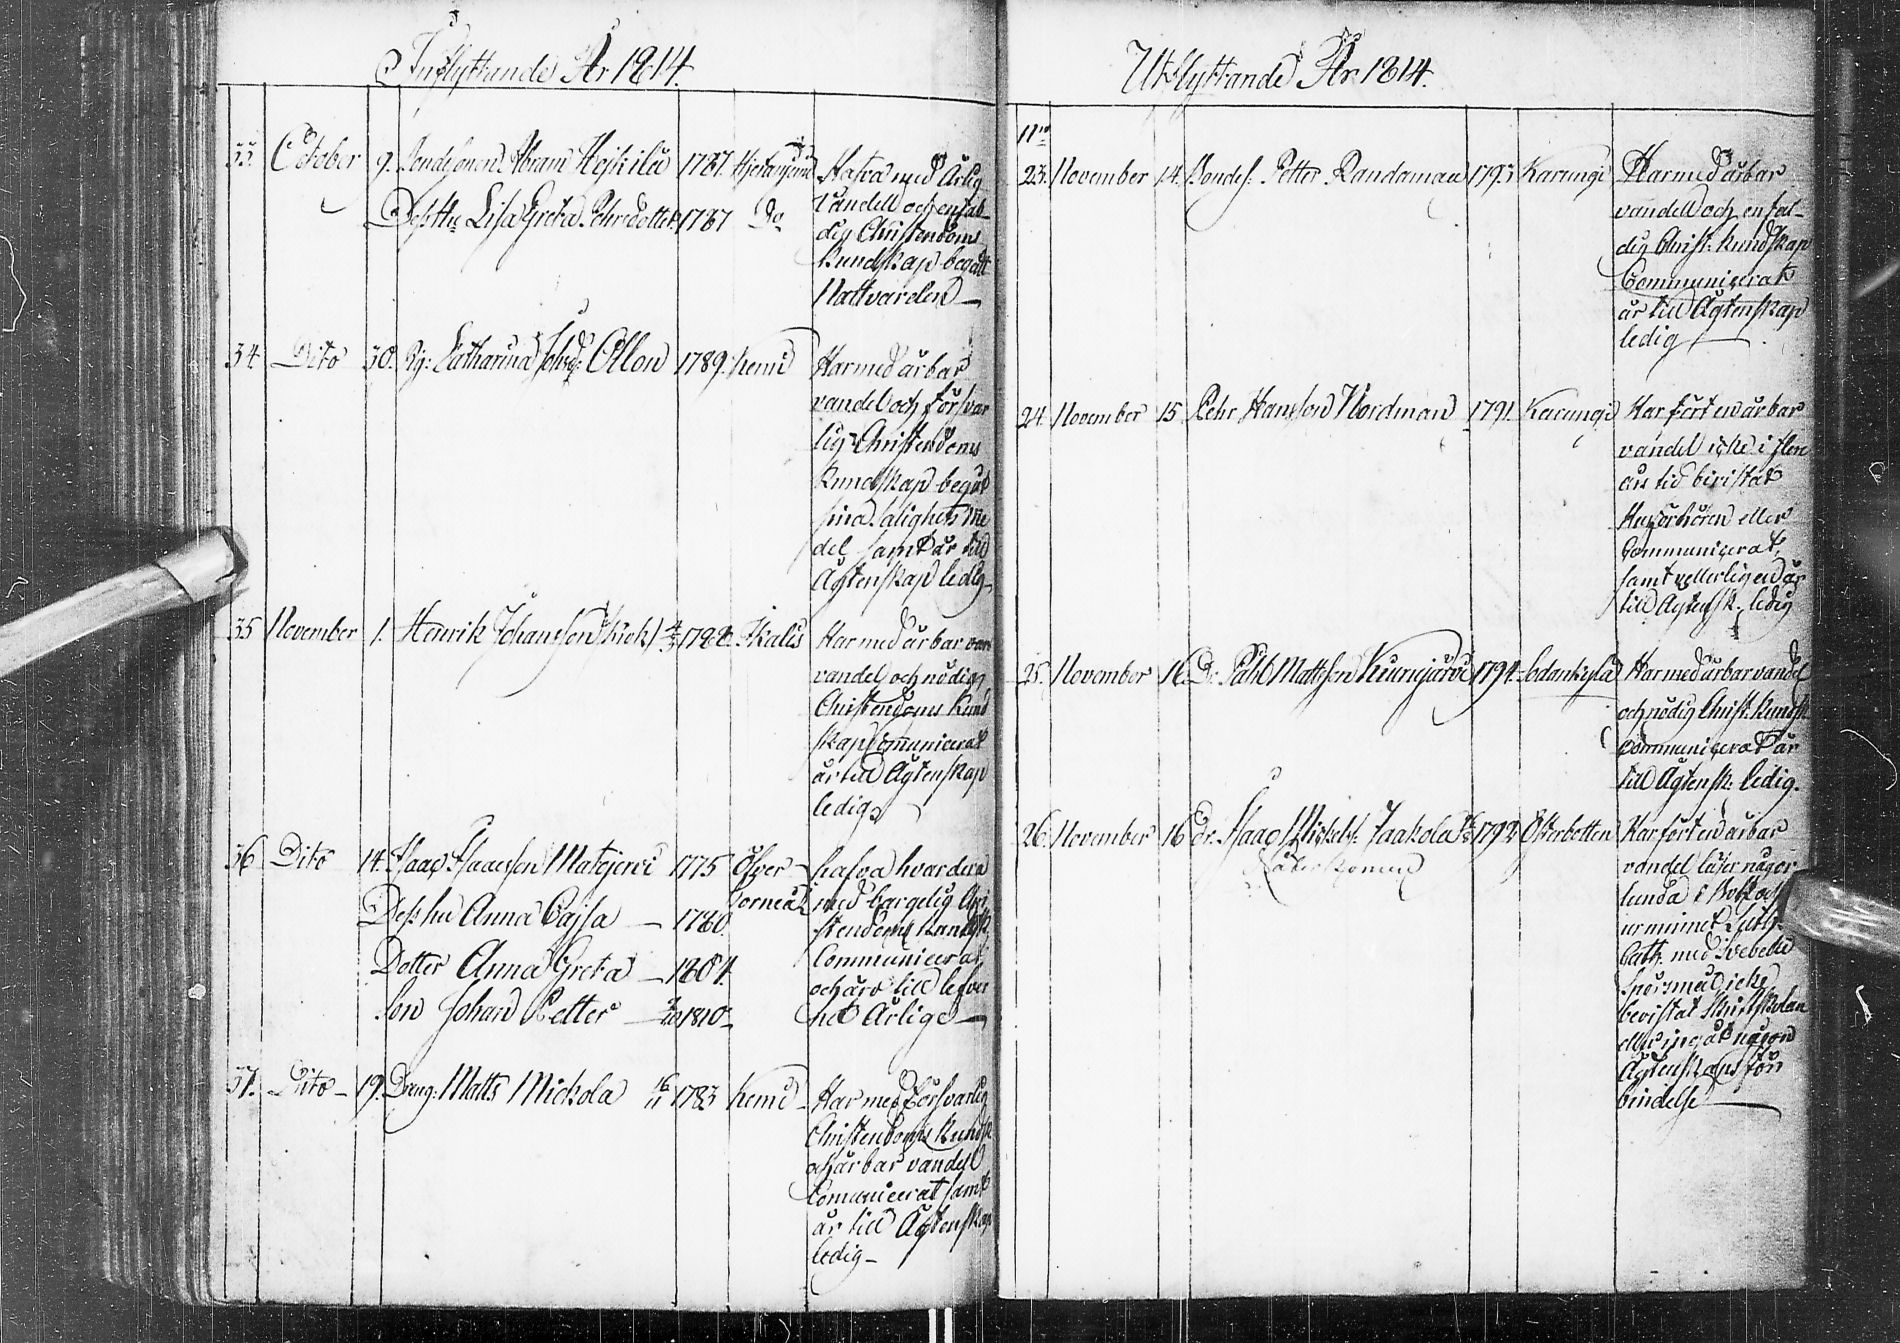 Inflyttande År 1814.
33. October 9. Bondesonen Abram Hejkilä 1787. Hjetaniemi Hafva med Ärlig
Dess hu Lisa Greta Pehrsdotter 1787 Do
vandell och enfal-
dig Christendoms
Kundskap begått
Nattvarden
34. Dito 30. Pig: Catharina Johsd: Ollon 1789. Kemi Har med ärbar
vandel och försvar
lig Christendoms
Kundskap begåt
sina salighets me
del samt är till
Ägtenskap ledig
35 November 1. Henrik Johansson 1788 Har med ärbar
vandel och nödig
Christendoms Kund
skap communicerat
är till Ägtenskap
ledig
36 Dito 14. Isaac Isacsson Matojervi 1775 Öfver-
Torneå
hafva hvardera
med bargelig Chri
stendoms Kundsk
Dess hu Anna Cajsa — 1780
Communicerat
Dotter Anna Greta — 1804.
och äro till lefver
Son Johan Petter 1810
net Ärlige
37. Dito 19. Dreng: Matts Mickola 16/11 1783 Kemi Har med försvarlig
Christendoms Kundsk
och ärbar vandel
Comunicerat samt
är till Ägtenskap
ledig
Utflyttande År 1814.
No
23. November 14. Bondes: Petter Randamaa 1793 Karungi Har med ärbar
vandell och enfal-
dig Christ: Kundskap
Communicerat
är till Ägtenskap
ledig
24. November 15 Pehr Hansson Nordman 1791. Karungi Har fört en ärbar
vandel icke i flere
års tid bevistat
Husförhören eller
Communicerat,
samt vetterligen är
till Ägtensk: ledig
25. November 16 Dr: Påhl Mattsson Kiurujärvi 1794 Sodankylä Har med ärbar vandel
och nödig Christ: Kundsk
Communicerat är
till Ägtensk: ledig.
26. November 16 Dr: Isaac Mickels: Jaakola 1792 Österbotten Har fört en ärbar
Återkommen
vandel läser någor
lunda i Bok och
ur minnet Luth:
Cath: med Svebelii
Spörsmål icke
bevistat Skriftskolan
eller ingåt någon
Ägtenskaps för
bindelse